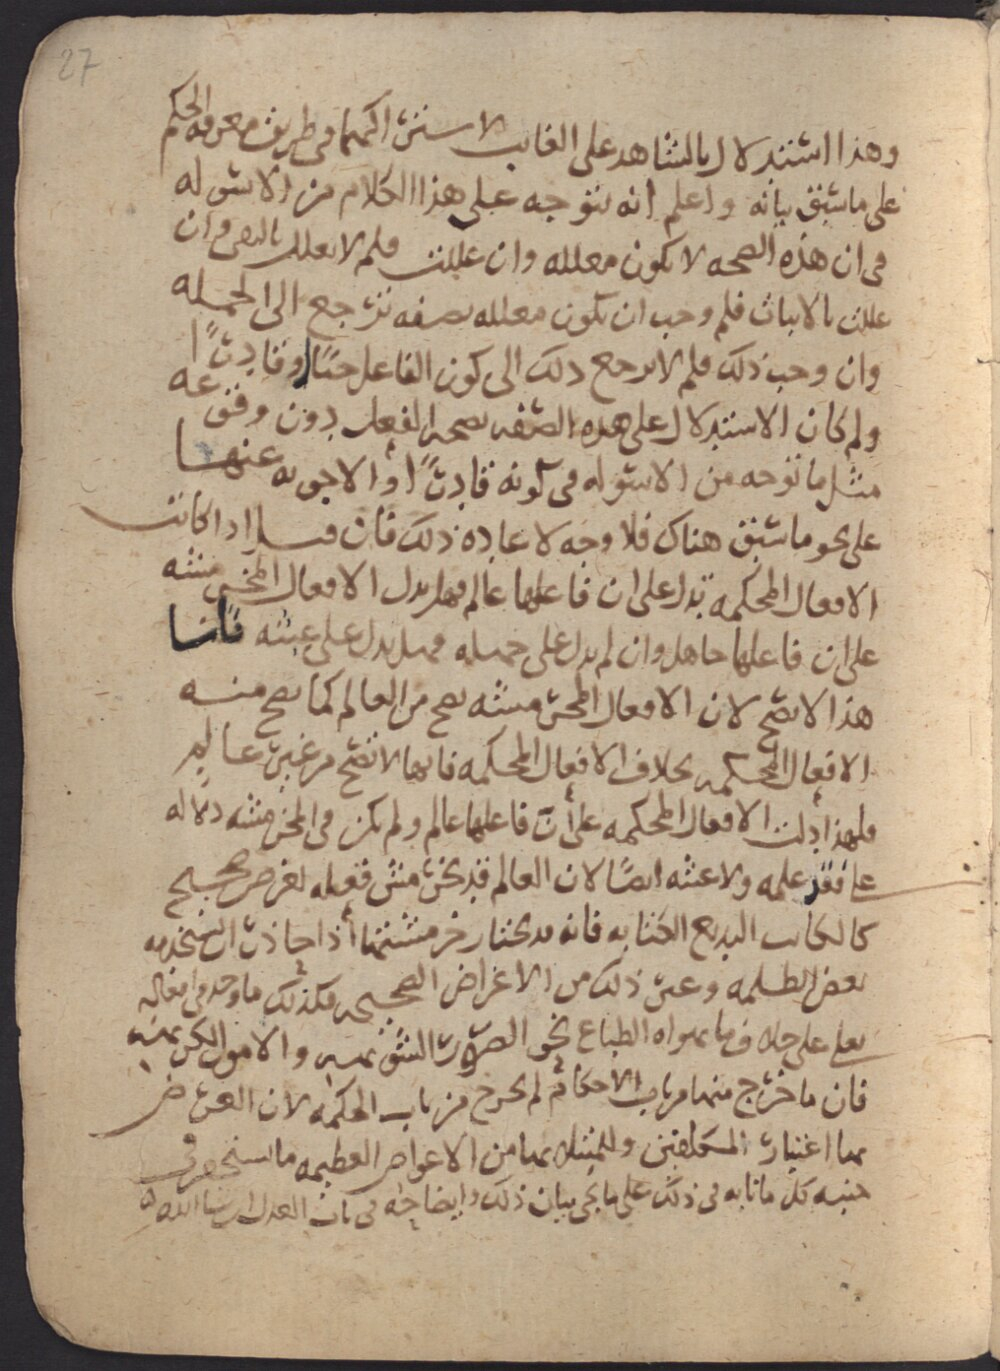 27
وهذا استدلال بالشاهد على الغايب لاشتراكهما في طريق معرفه الحكم
على ما سبق بيانه واعلم انه يتوجه على هذا الكلام من الاسوله
في ان هذه الصحه لا تكون معلله وان عللت فلم لا تعلل بالنفي وان
عللت بالاثبات فلم وجب ان تكون معلله بصفه ترجع الى الجمله
وان وجب ذلك فلم لا يرجع ذلك الى كون الفاعل حيًا او قادرًا
ولم كان الاستدلال على هذه الصفه بصحه الفعل دون وقوعه
مثل ما توجه من الاسوله في كونه قادرًا والاجوبه عنها
على نحو ما سبق هناك فلا وجه لاعاده ذلك فان قيل اذا كانت
الافعال المحكمه تدل على ان فاعلها عالم فهل تدل الافعال المخرمشه
على ان فاعلها جاهل وان لم يدل على جهله فهل يدل على عبثه قلنا
هذا لا يصح لان الافعال المخرمشه تصح من العالم كما تصح منه
الافعال المحكمه بخلاف الافعال المحكمه فانها لا تصح من غير عالم
فلهذا دلت الافعال المحكمه على أن فاعلها عالم ولم يكن في المخرمشه دلاله
على فقد علمه ولا عبثه ايضًا لان العالم قد يخرمش فعله لغرض صحيح
كالكاتب البديع الكتابه فانه قد يختار خرمشتها اذا حاذر ان يستخدمه
بعض الظلمه وغير ذلك من الاغراض الصحيحه فكذلك ما وجد في افعاله
تعلى على خلاف ما تهواه الطباع نحو الصور الشنيعه والامور الكريهه
فان ما خرج منها من باب الاحكام لم يخرج من باب الحكمه لان الغرض
بها اعتبار المكلفين وللممتثله بها من الاعواض العظيمه ما يستحقر في
جنبه كل ما نابه في ذلك على ما يجي بيان ذلك وايضاحه في باب العدل ان شا الله